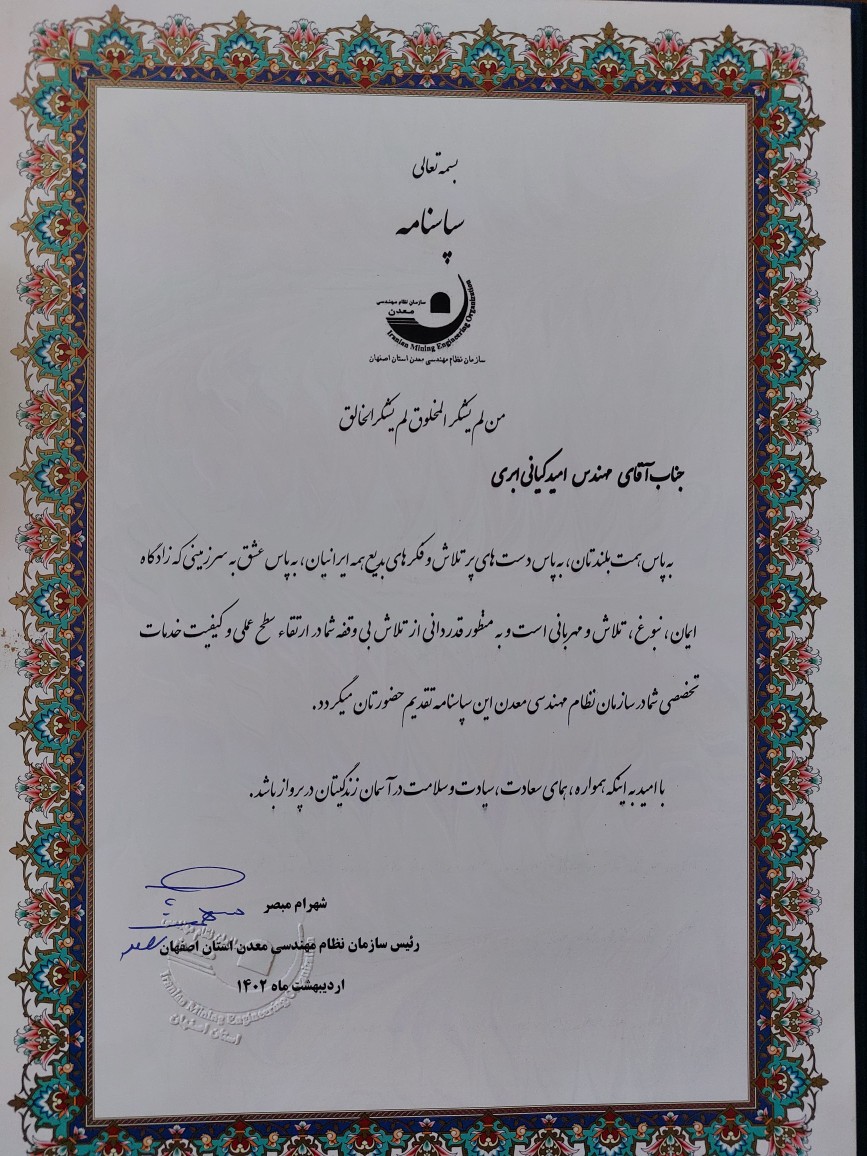 بسمه تعالی
سپاسنامه
سازمان نظام مهندسی
معدن
Iranian Mining Engineering Organization
سازمان نظام مهندسی معدن استان اصفهان
من لم یشکر المخلوق لم یشکر الخالق
جناب آقای مهندس امید کیانی ابری
به پاس همت بلندتان، به پاس دست های پر تلاش و فکر های بدیع همه ایرانیان، به پاس عشق به سرزمینی که زادگاه
ایمان، نبوغ، تلاش و مهربانی است و به منظور قدردانی از تلاش بی وقفه شما در ارتقاء سطح علمی و کیفیت خدمات
تخصصی شما در سازمان نظام مهندسی معدن این سپاسنامه تقدیم حضورتان میگردد.
با امید به اینکه همواره، همای سعادت، سیادت و سلامت در آسمان زندگیتان در پرواز باشد.
شهرام مبصر
رئیس سازمان نظام مهندسی معدن استان اصفهان
اردیبهشت ماه ۱۴۰۲
Iranian Mining Engineering Organization
استان اصفهان